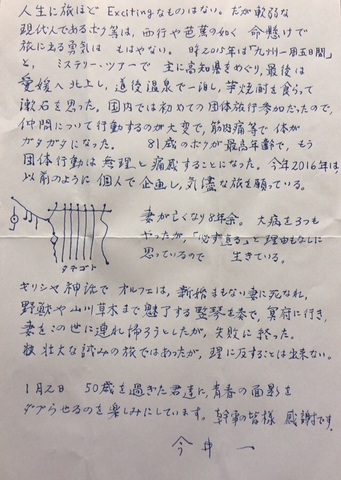 人生に旅ほど Excitingなものはない。だが軟弱な
現代人であるボク等は、西行や芭蕉の如く 命懸けで
旅に出る勇気は もはやない。 昨2015年は「九州一周五日間」
と、ミステリー・ツアーで 主に高知県をめぐり、最後は
愛媛へ北上し、道後温泉で一泊し、芋焼酎を食らって
漱石を思った。国内では初めての団体旅行参加だったので、
仲間について行動するのが大変で、筋肉痛等で体が
ガタガタになった。 81歳のボクが最高年齢で、もう
団体行動は無理と痛感することになった。今年2016年は、
以前のように個人で企画し、気儘な旅を願っている。
妻が亡くなり8年余。 大病を3つも
やったが、「必ず直る」と理由もなしに
思っているので 生きている。
タテゴト
ギリシャ神話で オルフェは、新婚まもない妻に死なれ、
野獣や山川草木まで魅了する竪琴を奏で、冥府に行き、
妻をこの世に連れ帰ろうとしたが、失敗に終った。
壮大な試みの旅ではあったが、理に反することは出来ない。
1月2日 50歳を過ぎた君達に、青春の面影を
ダブらせるのを楽しみにしています。幹事の皆様 感謝です。
今井 一